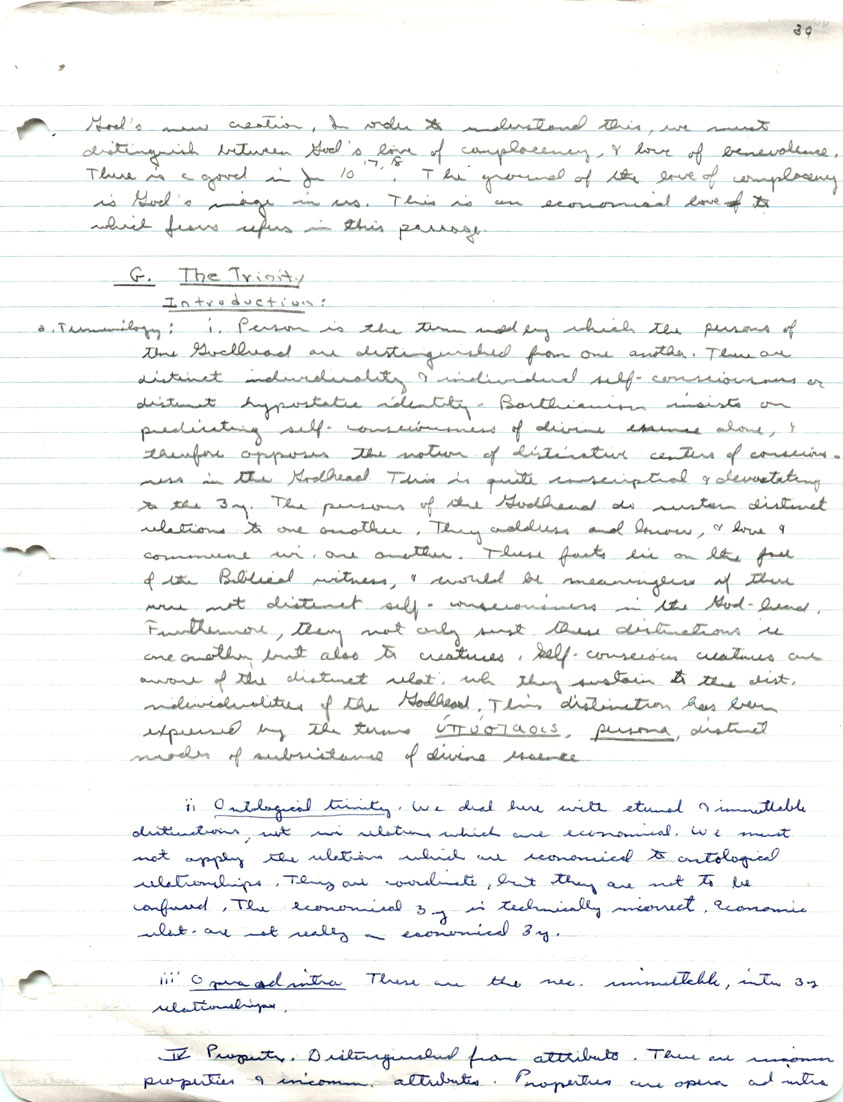 39
God's new creation, In order to understand this, we must
distinguish between God's love of complacency, & love of benevolence.
There is a good in Jn 10 17, 18. The ground of the love of complacency
is God's image in us. This is an economical love to
which Jesus refers in this passage.
G. The Trinity
Introduction:
a. Terminology: i. Person is the term used by which the persons of
the Godhead are distinguished from one another. There are
distinct individuality & individual self-consciousness or
distinct hypostatic identity. Barthianism insists on
predicating self-consciousness of divine essence alone, &
therefore opposes the notion of distinctive centers of conscious-
ness in the Godhead This is quite unscriptural & devastating
to the 3y. The persons of the Godhead do sustain distinct
relations to one another. They address and know, & love &
commune wi. one another. These facts lie on the face
of the Biblical witness, & would be meaningless if there
were not distinct self-consciousness in the God-head.
Furthermore, they not only sust. these distinctions re
one another, but also to creatures. Self-conscious creatures are
aware of the distinct relat. wh they sustain to the dist.
individualities of the Godhead. This distinction has been
expressed by the terms ὑπόστασις, persona, distinct
modes of subsistance of divine essence
ii Ontological trinity. We deal here with eternal & immuttable
distinctions, not wi relations which are economical. We must
not apply the relations which are economical to ontological
relationships. They are coordinate, but they are not to be
confused. The economical 3-y is technically incorrect. Economic
relat. are not really an economical 3y.
iii Opera ad intra These are the nec. immuttable, inter 3-y
relationships.
IV Property. Distinguished from attribute. There are incomm
properties & incomm. attributes. Properties are opera ad intra